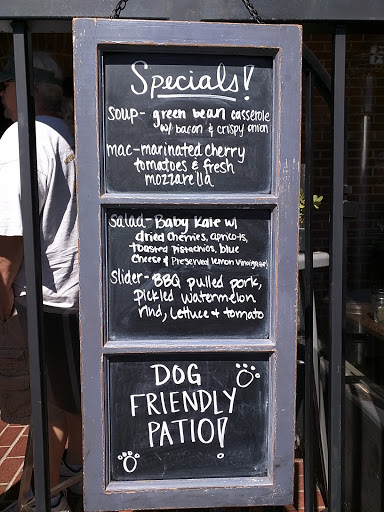 Specials!
Soup- green bean casserole
w/ bacon & crispy onion
mac-marinated cherry
tomatoes & fresh
mozzarella
Salad- Baby Kale w/
dried cherries, apricots,
toasted pistachios, blue
cheese & Preserved lemon vinaigrette
Slider- BBQ pulled pork,
pickled watermelon
rind, lettuce & tomato
DOG
FRIENDLY
PATIO!